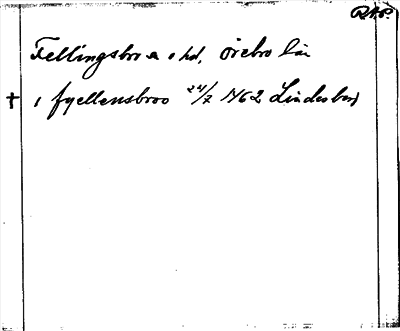 RAP.
Fellingsbro sn o hd, Örebro län
† i fyellensbroo 24/7 1462 Lindesberg